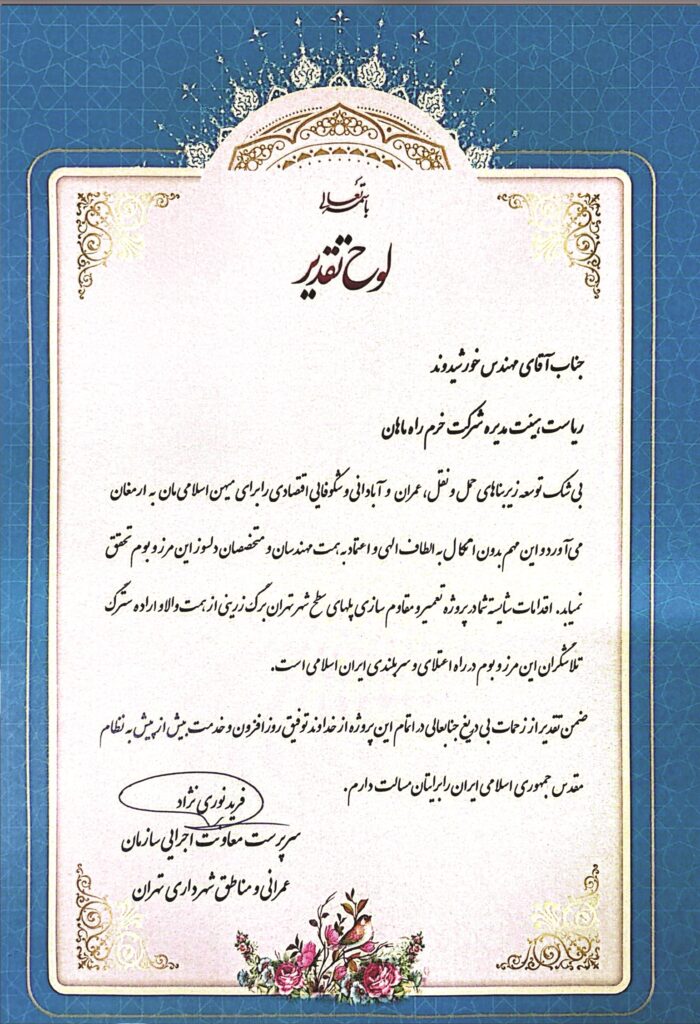 باسمه تعالی
لوح تقدیر
جناب آقای مهندس خورشیدوند
ریاست هیئت مدیره شرکت خرم راه ماهان
بی شک توسعه زیربناهای حمل و نقل، عمران و آبادانی و شکوفایی اقتصادی را برای میهن اسلامی مان به ارمغان
می آورد و این مهم بدون اتکال به الطاف الهی و اعتماد به همت مهندسان و متخصصان دلسوز این مرز و بوم تحقق
نمیابد. اقدامات شایسته شما در پروژه تعمیر و مقاوم سازی پلهای سطح شهر تهران برگ زرینی از همت والا و اراده سترگ
تلاشگران این مرز و بوم در راه اعتلای و سربلندی ایران اسلامی است.
ضمن تقدیر از زحمات بی دریغ جنابعالی در اتمام این پروژه از خداوند توفیق روز افزون و خدمت بیش از پیش به نظام
مقدس جمهوری اسلامی ایران را برایتان مسالت دارم.
فرید نوری نژاد
سرپرست معاونت اجرایی سازمان
عمرانی و مناطق شهرداری تهران